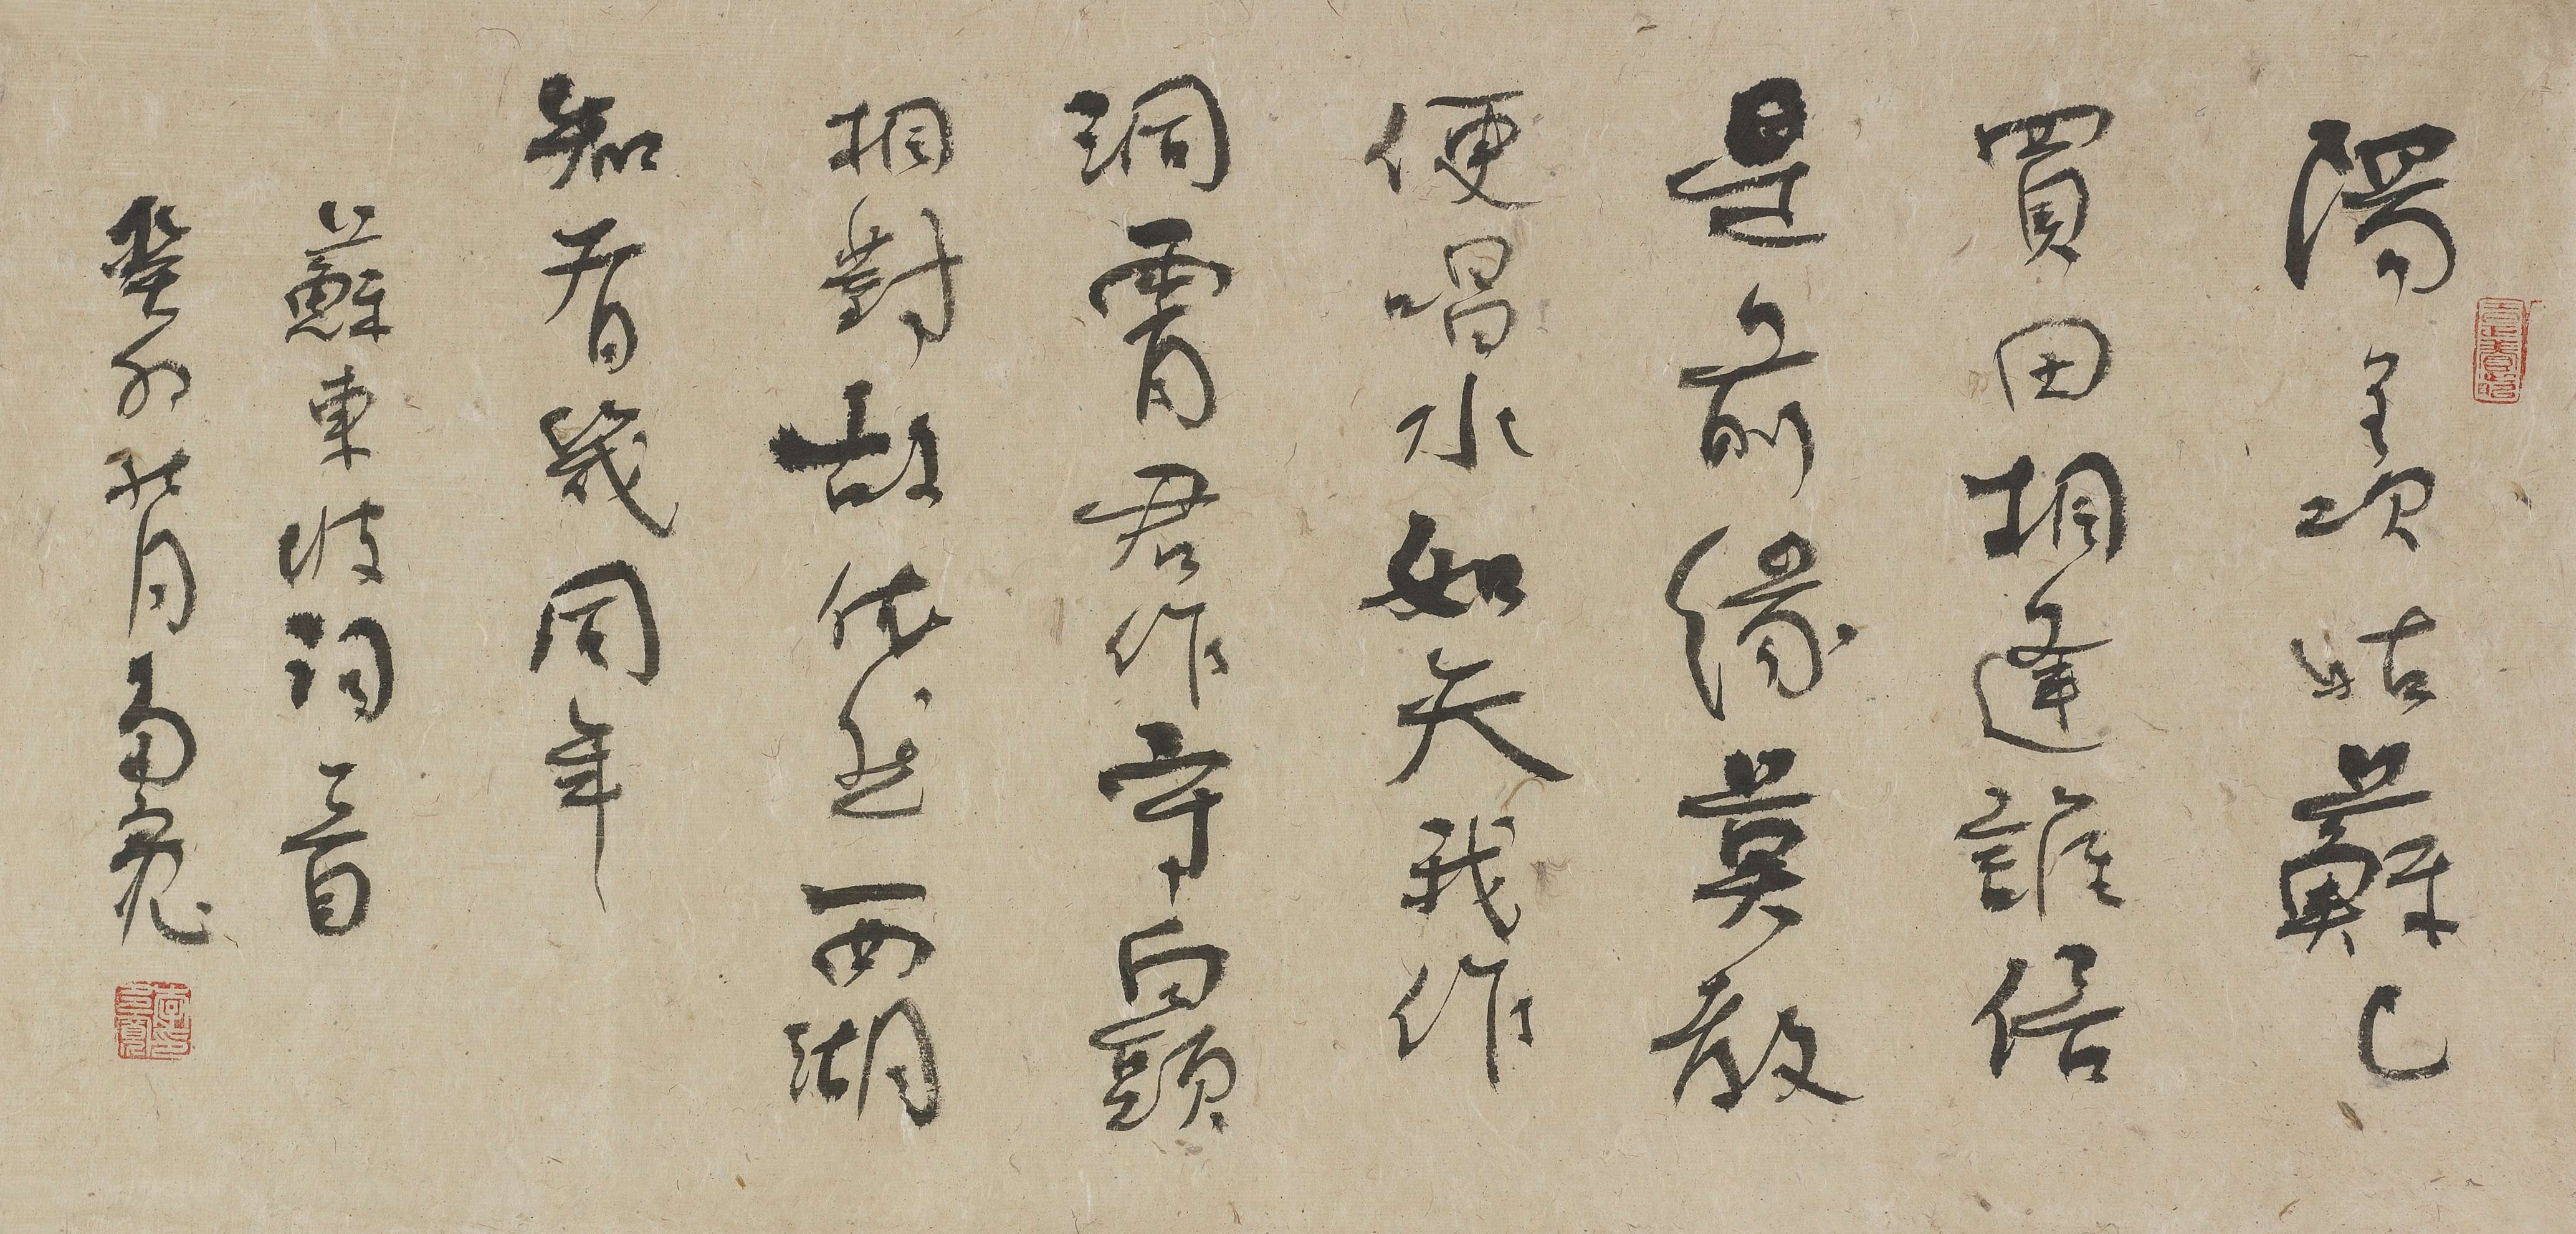 陽羨姑蘇已
買田相逢誰信
是前緣莫教
便唱水如天我作
洞霄君作守白頭
相對故依然西湖
知有幾同年
蘇東坡詞一首
癸卯月